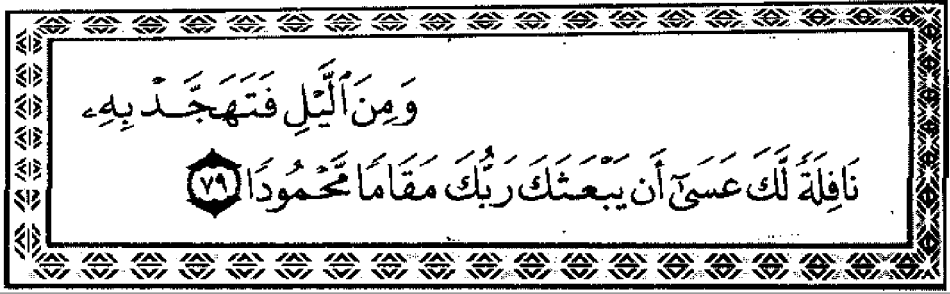 وَمِنَ ٱلَّيْلِ فَتَهَجَّدْ بِهِۦ
نَافِلَةً لَّكَ عَسَىٰٓ أَن يَبْعَثَكَ رَبُّكَ مَقَامًا مَّحْمُودًا ٧٩